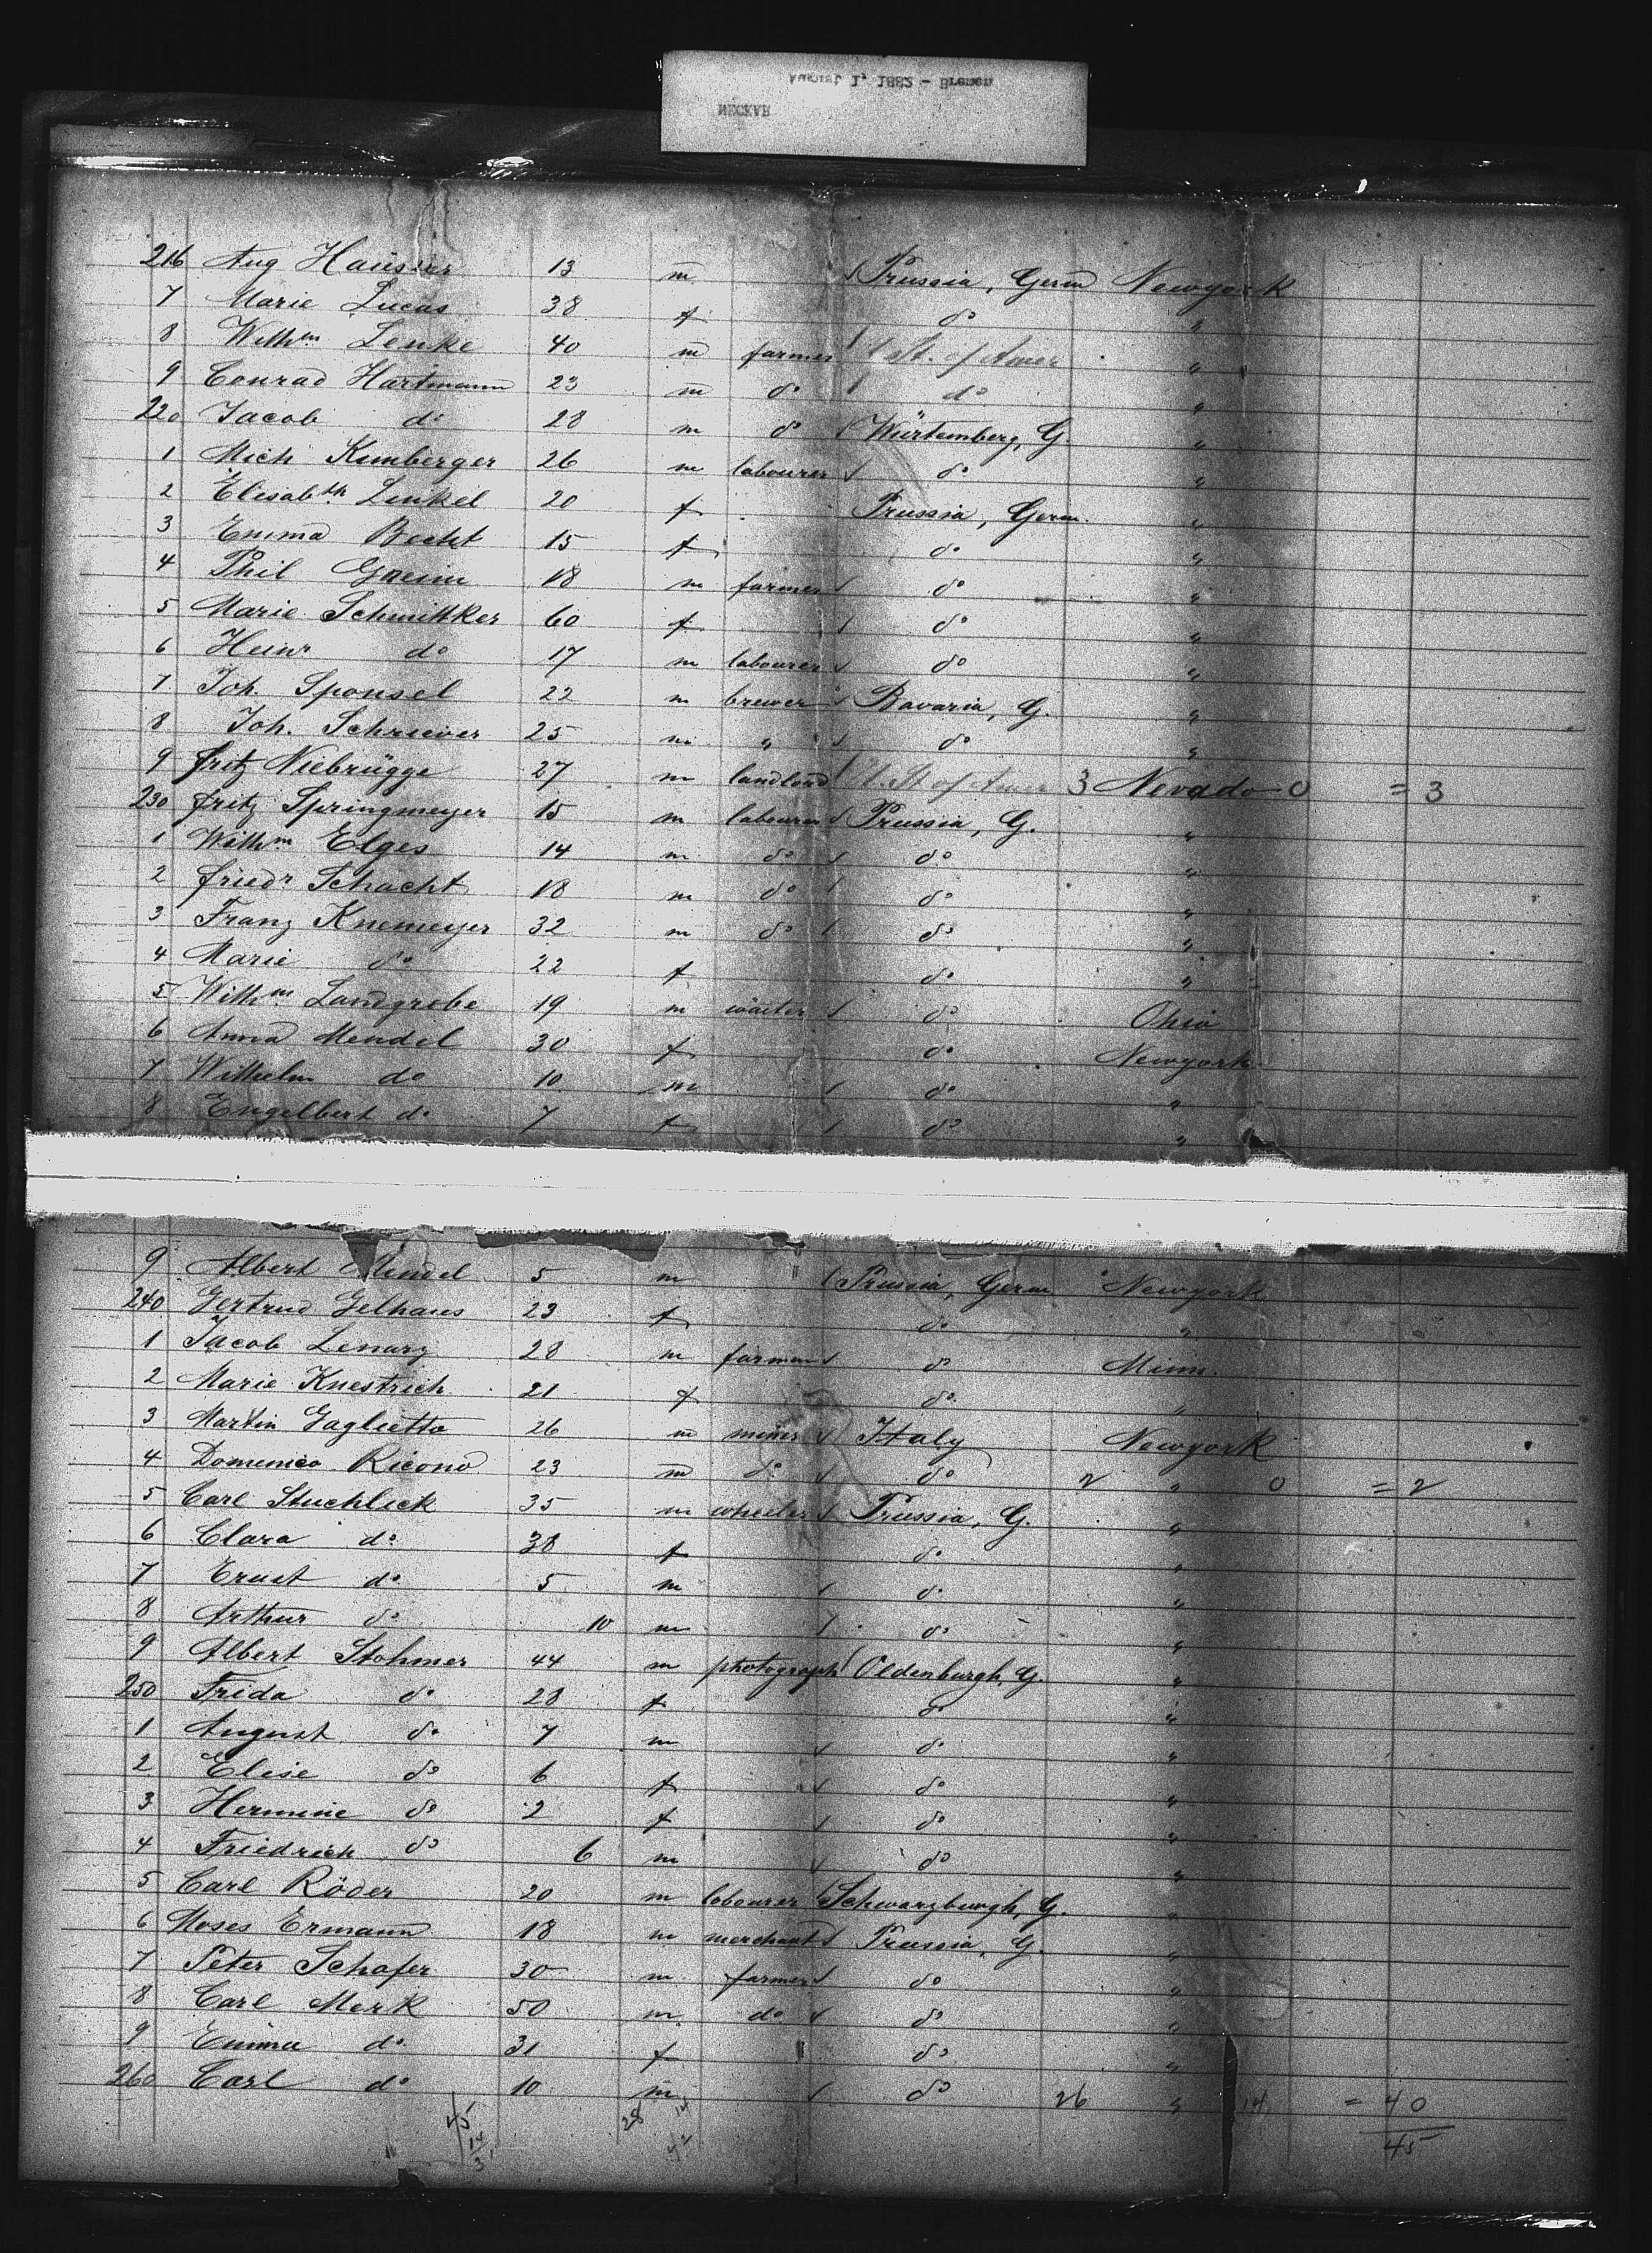 August 1, 1882 - Bremen
NECKAR
216 Aug Hausser 13 m Prussia, Germ Newyork
7 Marie Lucas 38 f do "
8 Wilhm Lenke 40 m farmer U. St. of Amer "
9 Conrad Hartmann 23 m do do "
220 Jacob do 28 m do Würtemberg, G. "
1 Mich Kumberger 26 m labourer do "
2 Elisabth Lenkel 20 f Prussia, Germ. "
3 Emma Becht 15 f do "
4 Phil 18 m farmer do "
5 Marie Schmittker 60 f do "
6 Heinr do 17 m labourer do "
7 Joh. Sponsel 22 m brewer Bavaria, G. "
8 Joh. Schriever 25 m " do "
9 Fritz Niebrügge 27 m landlord U. St of Amer 3 Nevado 0 = 3
230 Fritz Springmeyer 15 m labourer Prussia, G. "
1 Wilhm Elges 14 m do do "
2 Friedr Schacht 18 m do do "
3 Franz Knemeyer 32 m do do "
4 Marie do 22 f do "
5 Wilhm Landgrebe 19 m waiter do Ohio
6 Anna Mendel 30 f do Newyork
7 Wilhelm do 10 m do "
8 Engelbert do 7 f do "
9 Albert Mendel 5 m Prussia, Germ Newyork
240 Gertrud Gelhaus 23 f do "
1 Jacob Lenarz 28 m farmer do Minn.
2 Marie Knestrich 21 f do "
3 Martin Gaglietto 26 m miner Italy Newyork
4 Domenico Ricono 23 m do do 2 " 0 = 2
5 Carl Stuchlick 35 m wheeler Prussia, G. "
6 Clara do 38 f do "
7 Ernst do 5 m do "
8 Arthur do 10 m do "
9 Albert Stohmer 44 m photograph Oldenburgh, G. "
250 Frida do 28 f do "
1 August do 7 m do "
2 Elise do 6 f do "
3 Hermine do 2 f do "
4 Friedrich do 6 m do "
5 Carl Röder 20 m labourer Schwarzburgh, G. "
6 Moses Ermann 18 m merchant Prussia, G. "
7 Peter Schafer 30 m farmer do "
8 Carl Merk 50 m do do "
9 Emma do 31 f do "
260 Carl do 10 m do 26 " 14 = 40
45 28 14 45
14 42